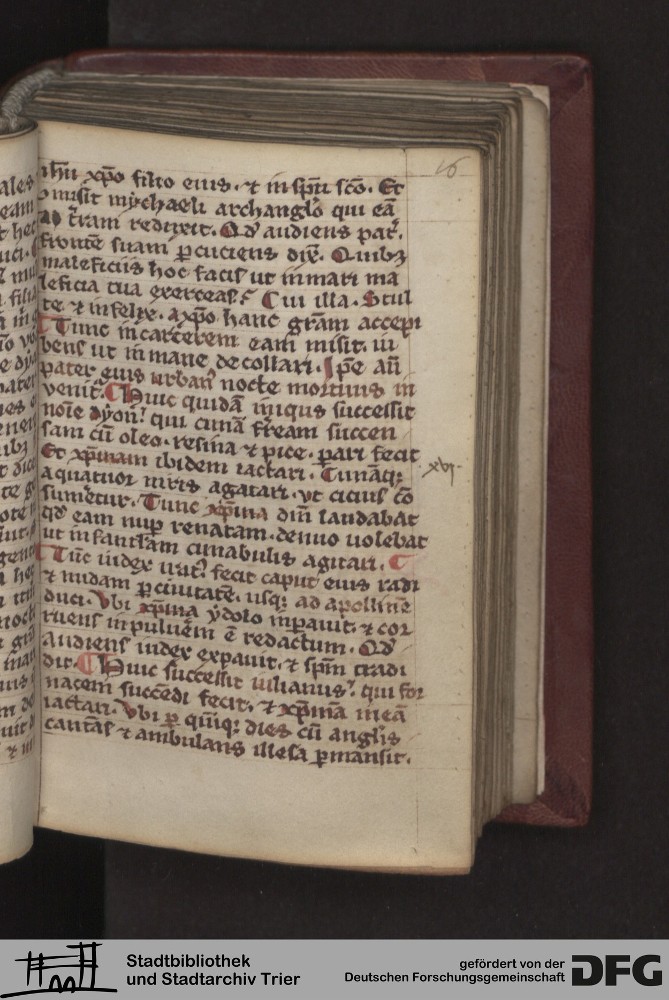 16
ihu xpo filio eius. et in spu sco. Et
misit mychaeli archanglo qui eā
ad t̄ram reduxit. Qd' audiens pat̄.
frontē suam p̱cuciens dix̄. Quibꝫ
maleficiis hoc facis ut in mari ma
leficia tua exerceas? Cui illa. Stul
te et infelyx. a xp̄o hanc grām accepi
Tunc in carcerem eam misit. iu
bens ut in mane decollari. Ip̄e aū
pater eius urban' nocte mortuus in
venit̄. Huic quidā iniqus successit
noīe dyon' qui cunā f̄ream succen
sam cū oleo. resina et pice. parari fecit
Et xp̄inam ibidem iactari. Cunāqꝫ
xvj.
a quatuor viris agitari. vt cicius cō
sumetur. Tunc xp̄ina dm̄ laudabat
qd' eam nup̱ renatam. denuo uolebat
ut infantulam cunabulis agitari.
Tūc iudex fecit caput eius radi
et nudam p̱ ciuitatē. usqꝫ ad apollinē
duci. Vbi xp̄ina ydolo inpauit. et cor
ruens in puluēm ē redactum. Qd'
audiens iudex expauit. et spm̄ tradi
dit. Huic successit iulianus. qui for
nacem succēdi fecit. et xp̄inā in eā
iactari. Vbi p̱ qūiqꝫ dies cū anglis
cantās et ambulans illesa p̱mansit.
Stadtbibliothek
und Stadtarchiv Trier
gefördert von der
Deutschen Forschungsgemeinschaft
DFG